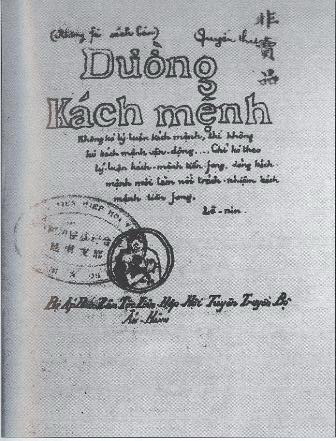 (Không fải sách bán)
Quyển thứ
非賣品
Đường
Kách mệnh
Không có lý luận kách mệnh, thì không
có kách mệnh vận-động.... Chỉ có theo
lý-luận kách-mệnh tiền-fong, đảng kách
mệnh mới làm nổi trách-nhiệm kách
mệnh tiền fong.
Lê-nin.
Bị Áp Bức Dân Tộc Liên Hiệp Hội Tuyên Truyền Bộ